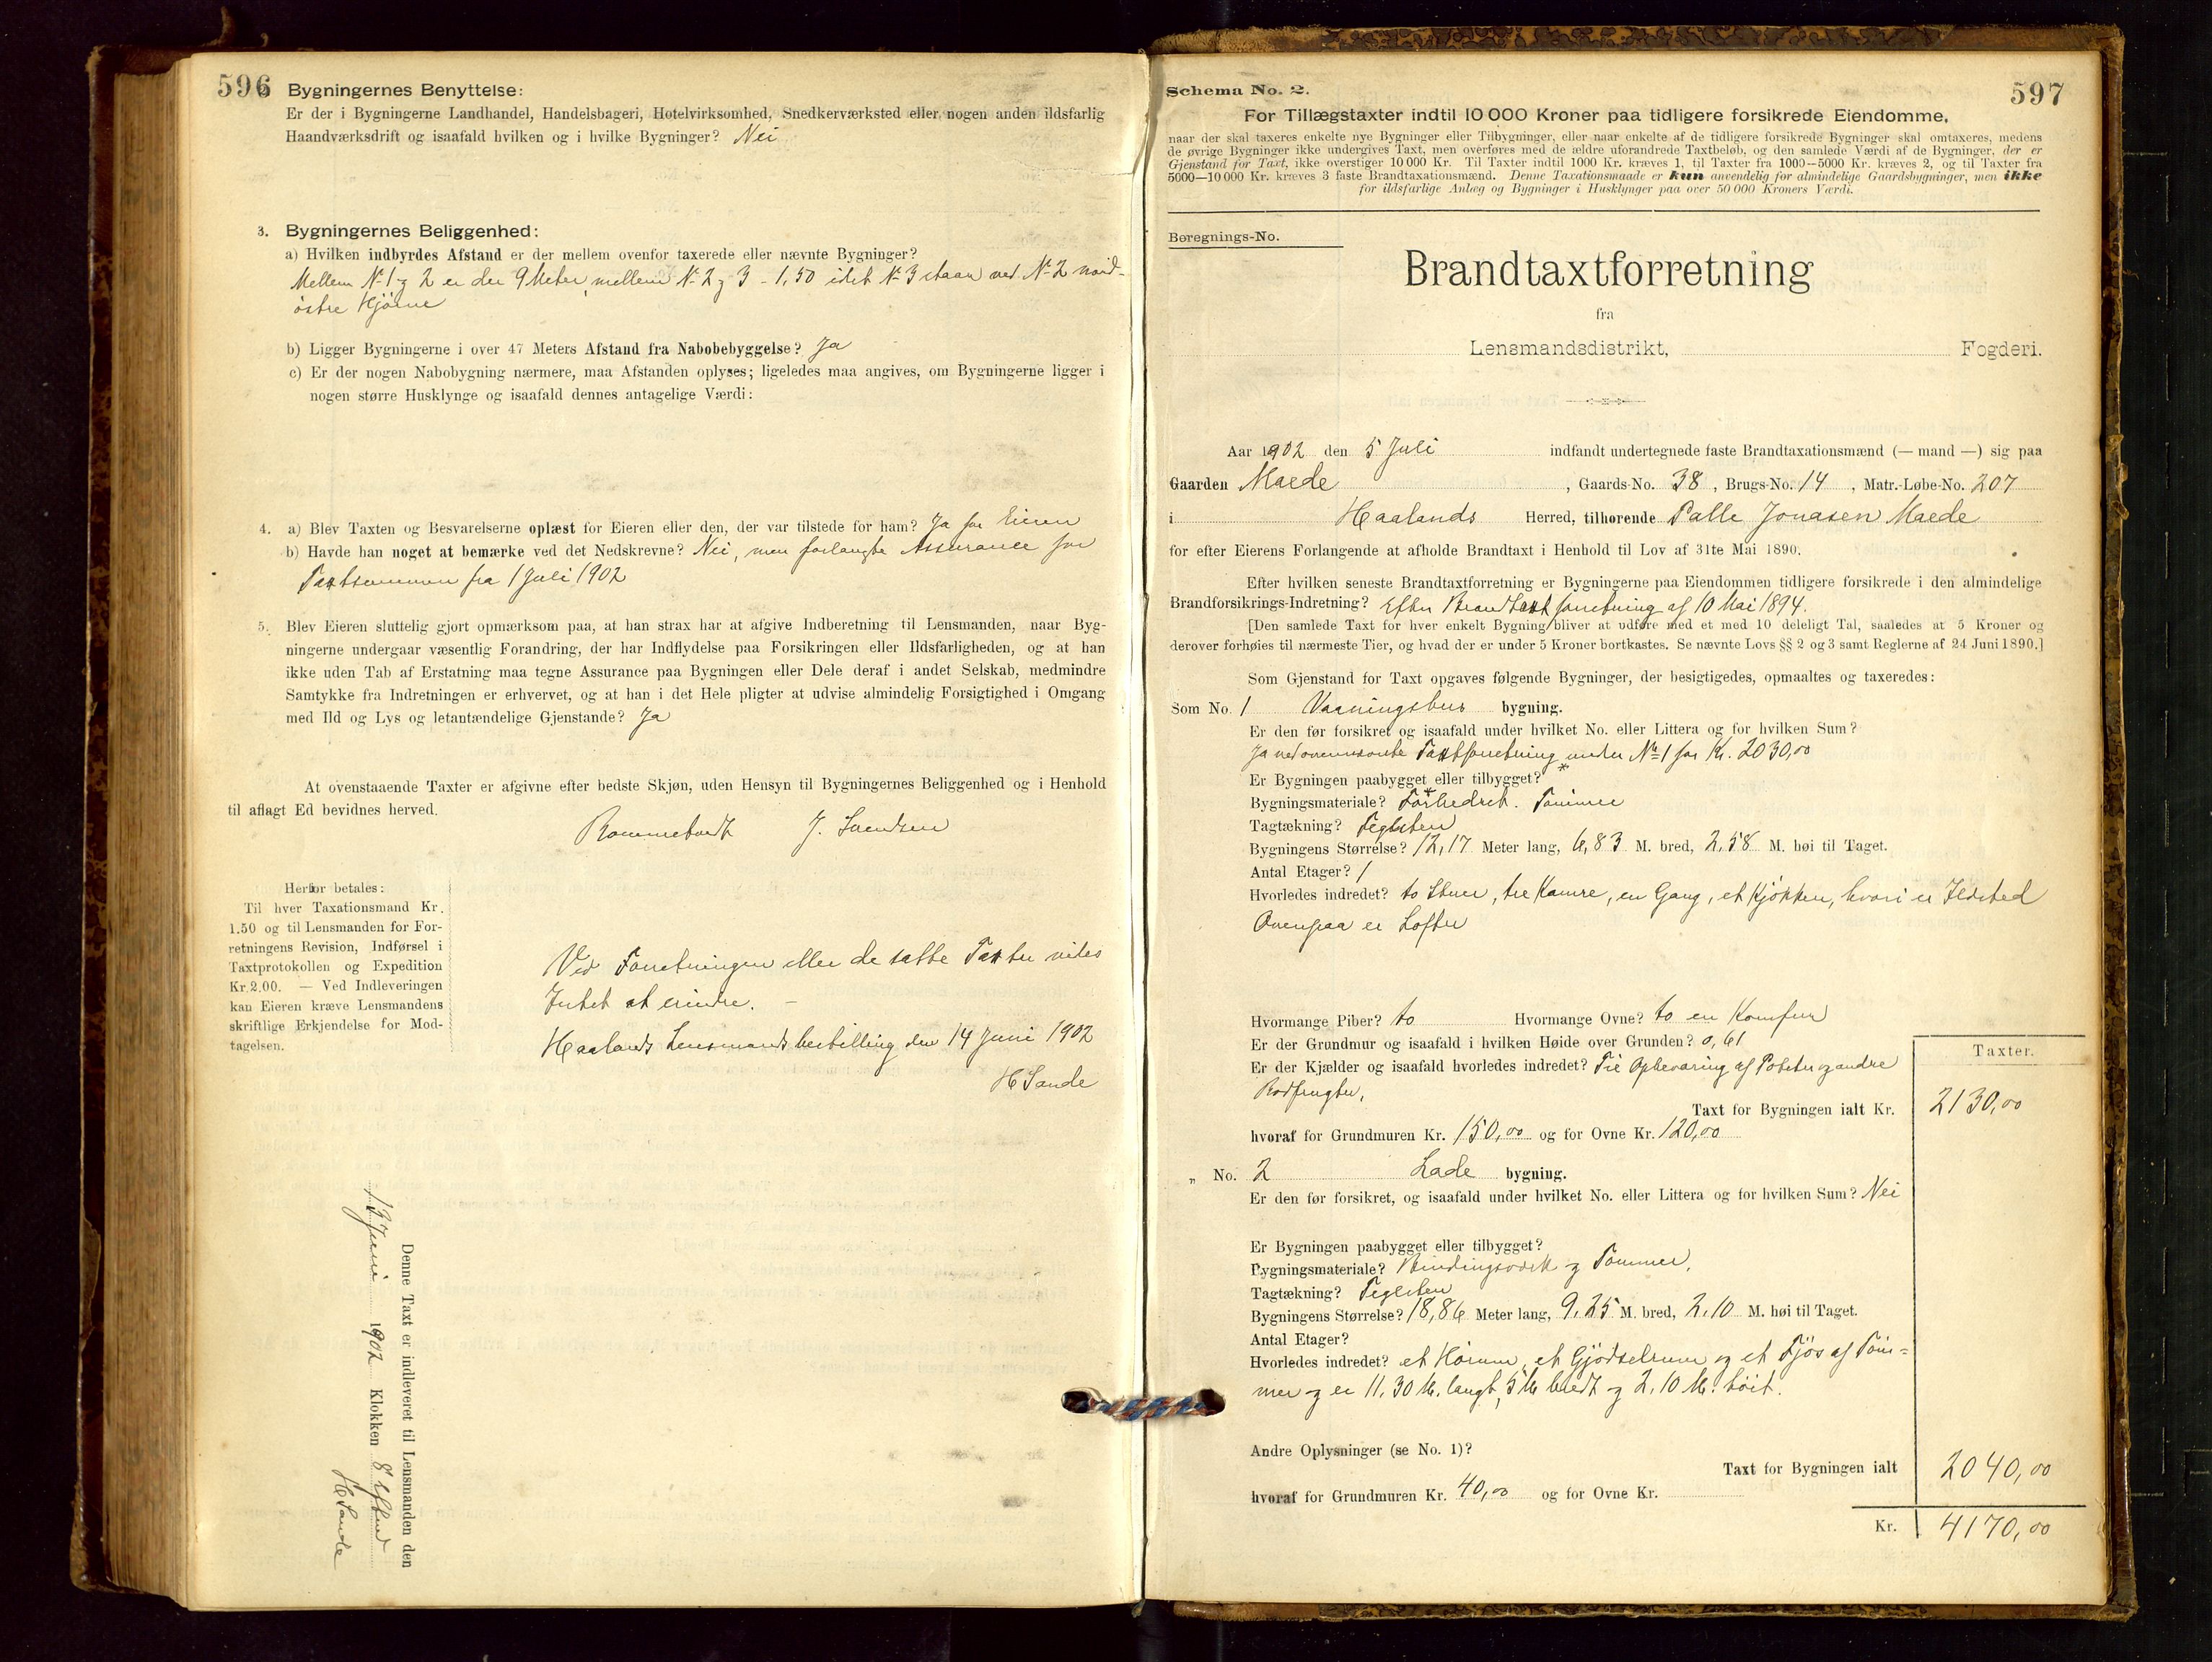 596
Bygningernes Benyttelse:
Er der i Bygningerne Landhandel, Handelsbageri, Hotelvirksomhed, Snedkerværksted eller nogen anden ildsfarlig
Haandværksdrift og isaafald hvilken og i hvilke Bygninger? Nei
3. Bygningernes Beliggenhed:
a) Hvilken indbyrdes Afstand er der mellem ovenfor taxerede eller nævnte Bygninger?
Mellem No 1 og 2 er der 9 Meter, mellem No 2 og 3 - 1,50 idet No 3 staar ved No 2 nord-
østre Hjørne
b) Ligger Bygningerne i over 47 Meters Afstand fra Nabobebyggelse? Ja
c) Er der nogen Nabobygning nærmere, maa Afstanden oplyses; ligeledes maa angives, om Bygningerne ligger i
nogen større Husklynge og isaafald dennes antagelige Værdi:
4. a) Blev Taxten og Besvarelserne oplæst for Eieren eller den, der var tilstede for ham? Ja for Eieren
b) Havde han noget at bemærke ved det Nedskrevne? Nei, men forlangte Assurance for
Taxtsummen fra 1 Juli 1902
5. Blev Eieren sluttelig gjort opmærksom paa, at han strax har at afgive Indberetning til Lensmanden, naar Byg-
ningerne undergaar væsentlig Forandring, der har Indflydelse paa Forsikringen eller Ildsfarligheden, og at han
ikke uden Tab af Erstatning maa tegne Assurance paa Bygningen eller Dele deraf i andet Selskab, medmindre
Samtykke fra Indretningen er erhvervet, og at han i det Hele pligter at udvise almindelig Forsigtighed i Omgang
med Ild og Lys og letantændelige Gjenstande? Ja
At ovenstaaende Taxter er afgivne efter bedste Skjøn, uden Hensyn til Bygningernes Beliggenhed og i Henhold
til aflagt Ed bevidnes herved.
Rommetvedt J. Svendsen
Herfor betales:
Til hver Taxationsmand Kr.
1.50 og til Lensmanden for For-
retningens Revision, Indførsel i
Taxtprotokollen og Expedition
Kr. 2.00. — Ved Indleveringen
kan Eieren kræve Lensmandens
skriftlige Erkjendelse for Mod-
tagelsen.
Ved Forretningen eller de satte Taxter vides
Intet at erindre. -
Haalands Lensmandsbestilling den 14 Juni 1902
H Sande
Denne Taxt er indleveret til Lensmanden den
13 Juni 1902 Klokken 8 Efterm
H Sande
597
Schema No. 2.
For Tillægstaxter indtil 10 000 Kroner paa tidligere forsikrede Eiendomme,
naar der skal taxeres enkelte nye Bygninger eller Tilbygninger, eller naar enkelte af de tidligere forsikrede Bygninger skal omtaxeres, medens
de øvrige Bygninger ikke undergives Taxt, men overføres med de ældre uforandrede Taxtbeløb, og den samlede Værdi af de Bygninger, der er
Gjenstand for Taxt, ikke overstiger 10 000 Kr. Til Taxter indtil 1000 Kr. kræves 1, til Taxter fra 1000—5000 Kr. kræves 2, og til Taxter fra
5000—10 000 Kr. kræves 3 faste Brandtaxationsmænd. Denne Taxationsmaade er kun anvendelig for almindelige Gaardsbygninger, men ikke
for ildsfarlige Anlæg og Bygninger i Husklynger paa over 50 000 Kroners Værdi.
Beregnings-No.
Brandtaxtforretning
fra
Lensmandsdistrikt, Fogderi.
Aar 1902 den 5 Juli indfandt undertegnede faste Brandtaxationsmænd (— mand —) sig paa
Gaarden Maede, Gaards-No. 38, Brugs-No. 14, Matr.-Løbe-No. 207
i Haalands Herred, tilhørende Palle Jonasen Maede
for efter Eierens Forlangende at afholde Brandtaxt i Henhold til Lov af 31te Mai 1890.
Efter hvilken seneste Brandtaxtforretning er Bygningerne paa Eiendommen tidligere forsikrede i den almindelige
Brandforsikrings-Indretning? Efter Brandtaxtforretning af 10 Mai 1894.
[Den samlede Taxt for hver enkelt Bygning bliver at udføre med et med 10 deleligt Tal, saaledes at 5 Kroner og
derover forhøies til nærmeste Tier, og hvad der er under 5 Kroner bortkastes. Se nævnte Lovs §§ 2 og 3 samt Reglerne af 24 Juni 1890.]
Som Gjenstand for Taxt opgaves følgende Bygninger, der besigtigedes, opmaaltes og taxeredes:
Som No. 1 Vaaningshus bygning.
Er den før forsikret og isaafald under hvilket No. eller Littera og for hvilken Sum?
Ja ved ovennævnte Taxtforretning under No 1 for Kr. 2030,00
Er Bygningen paabygget eller tilbygget? *
Bygningsmateriale? Forbedret. Tømmer
Tagtækning? Teglsten
Bygningens Størrelse? 12,17 Meter lang, 6,83 M. bred, 2,58 M. høi til Taget.
Antal Etager? 1
Hvorledes indredet? to Stuer, tre Kamre, en Gang, et Kjøkken, hvori er Ildsted
Ovenpaa er Lofter
Hvormange Piber? to Hvormange Ovne? to en Komfur
Er der Grundmur og isaafald i hvilken Høide over Grunden? 0,61
Er der Kjælder og isaafald hvorledes indredet? Til Opbevaring af Poteter og andre
Rodfrugter,
Taxter.
Taxt for Bygningen ialt Kr. 2130,00
hvoraf for Grundmuren Kr. 150,00 og for Ovne Kr. 120,00
„ No. 2 Lade bygning.
Er den før forsikret, og isaafald under hvilket No. eller Littera og for hvilken Sum? Nei
Er Bygningen paabygget eller tilbygget?
Bygningsmateriale? Bindingsværk og Tømmer,
Tagtækning? Teglsten
Bygningens Størrelse? 18,86 Meter lang, 9,25 M. bred, 2,10 M. høi til Taget.
Antal Etager?
Hvorledes indredet? et Hørum, et Gjødselrum og et Fjøs af Tøm-
mer og er 11,30 M. langt, 5 M bredt og 2,10 M. høit.
Andre Oplysninger (se No. 1)?
Taxt for Bygningen ialt 2040,00
hvoraf for Grundmuren Kr. 40,00 og for Ovne Kr.
Kr. 4170,00